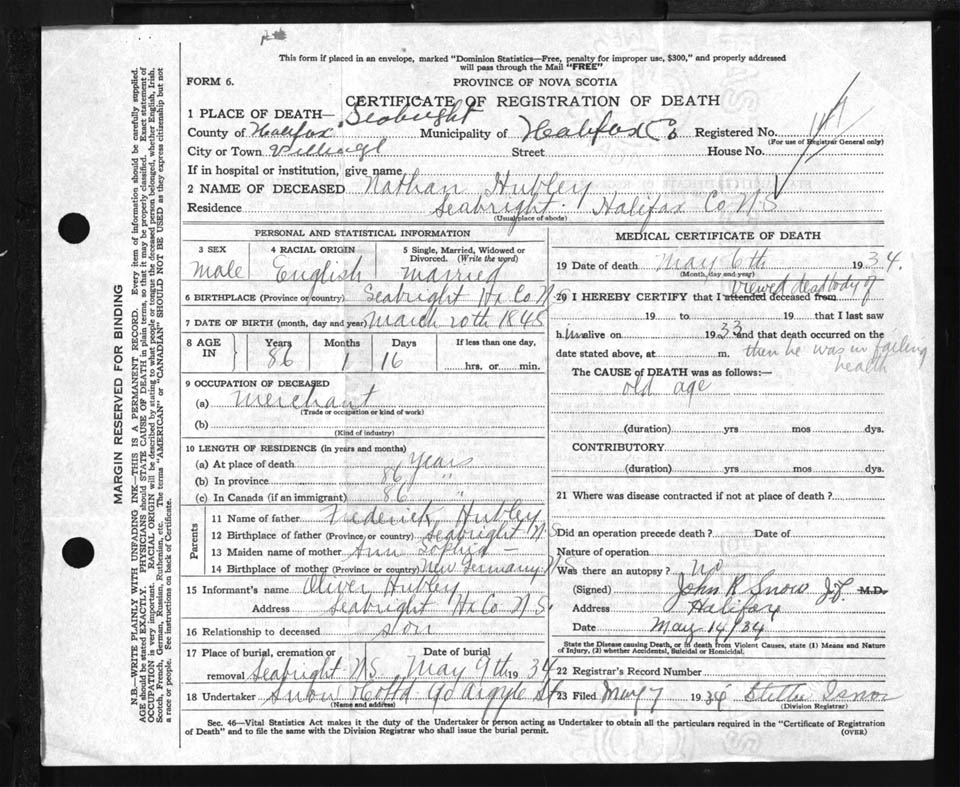 This form if placed in an envelope, marked "Dominion Statistics—Free, penalty for improper use, $300," and properly addressed
will pass through the Mail "FREE"
FORM 6.
PROVINCE OF NOVA SCOTIA
CERTIFICATE OF REGISTRATION OF DEATH
1 PLACE OF DEATH— Seabright
County of Halifax Municipality of Halifax Co Registered No.
(For use of Registrar General only)
City or Town Village Street House No.
If in hospital or institution, give name
2 NAME OF DECEASED Nathan Hubley
Residence Seabright Halifax Co N.S
(Usual place of abode)
PERSONAL AND STATISTICAL INFORMATION
3 SEX 4 RACIAL ORIGIN 5 Single, Married, Widowed or
Divorced. (Write the word)
male English married
6 BIRTHPLACE (Province or country) Seabright Hx Co N.S
7 DATE OF BIRTH (month, day and year) March 20th 1848
8 AGE IN Years Months Days If less than one day,
86 1 16 hrs. or min.
9 OCCUPATION OF DECEASED
(a) merchant
(Trade or occupation or kind of work)
(b)
(Kind of industry)
10 LENGTH OF RESIDENCE (in years and months)
(a) At place of death 86 years
(b) In province 86 "
(c) In Canada (if an immigrant) 86 "
Parents
11 Name of father Frederick Hubley
12 Birthplace of father (Province or country) Seabright N S
13 Maiden name of mother Ann Sophia —
14 Birthplace of mother (Province or country) New Germany N S
15 Informant's name Oliver Hubley
Address Seabright Hx Co N S.
16 Relationship to deceased son
17 Place of burial, cremation or removal Date of burial
Seabright N S. May 9th 1934
18 Undertaker Snow 90 Argyle St
(Name and address)
MEDICAL CERTIFICATE OF DEATH
19 Date of death May 6th 1934.
(Month, day and year)
viewed dead body of
20 I HEREBY CERTIFY that I attended deceased from
19 to 19 that I last saw
h im alive on 1933 and that death occurred on the
date stated above, at m. then he was in failing
health
The CAUSE of DEATH was as follows:—
old age
(duration) yrs mos dys.
CONTRIBUTORY
(duration) yrs mos dys.
21 Where was disease contracted if not at place of death?
Did an operation precede death? Date of
Nature of operation
Was there an autopsy? no
(Signed) John R Snow J.P. M.D.
Address Halifax
Date May 14/34
State the Disease causing Death, or in death from Violent Causes, state (1) Means and Nature
of Injury, (2) whether Accidental, Suicidal or Homicidal.
22 Registrar's Record Number
23 Filed May 7 1934
(Division Registrar)
Sec. 46—Vital Statistics Act makes it the duty of the Undertaker or person acting as Undertaker to obtain all the particulars required in the "Certificate of Registration
of Death" and to file the same with the Division Registrar who shall issue the burial permit.
(OVER)
MARGIN RESERVED FOR BINDING
N.B.—WRITE PLAINLY WITH UNFADING INK—THIS IS A PERMANENT RECORD. Every item of information should be carefully supplied.
AGE should be stated EXACTLY. PHYSICIANS should STATE CAUSE OF DEATH in plain terms, so that it may be properly classified. Exact statement of
OCCUPATION is very important. RACIAL ORIGIN will be described by stating to what people or tongue the deceased person belonged, whether English, Irish,
Scotch, French, German, Russian, Ruthenian, etc. The terms "AMERICAN" or "CANADIAN" SHOULD NOT BE USED as they express citizenship but not
a race or people. See instructions on back of Certificate.